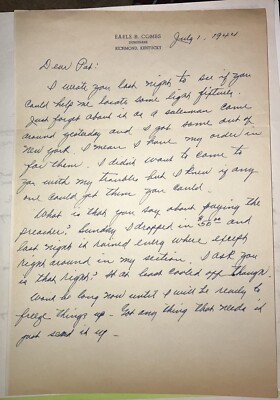 EARLE B. COMBS
RICHMOND, KENTUCKY
July 1, 1944
Dear Pat:
I wrote you last night to see if you
could help me locate some light fixtures.
Just forget about it as a salesman came
around yesterday and I got some out of
New York. I mean I have my order in
for them. I didn't want to come to
you with my trouble but I knew if any
one could get them you could.
What is that you say about paying the
preacher? Sunday I dropped in $50.00 and
last night it rained every where except
right around in my section. I ask you
is that right? It at least cooled off though.
Won't be long now until I will be ready to
freeze things up - Got any thing that needs it
just send it up -